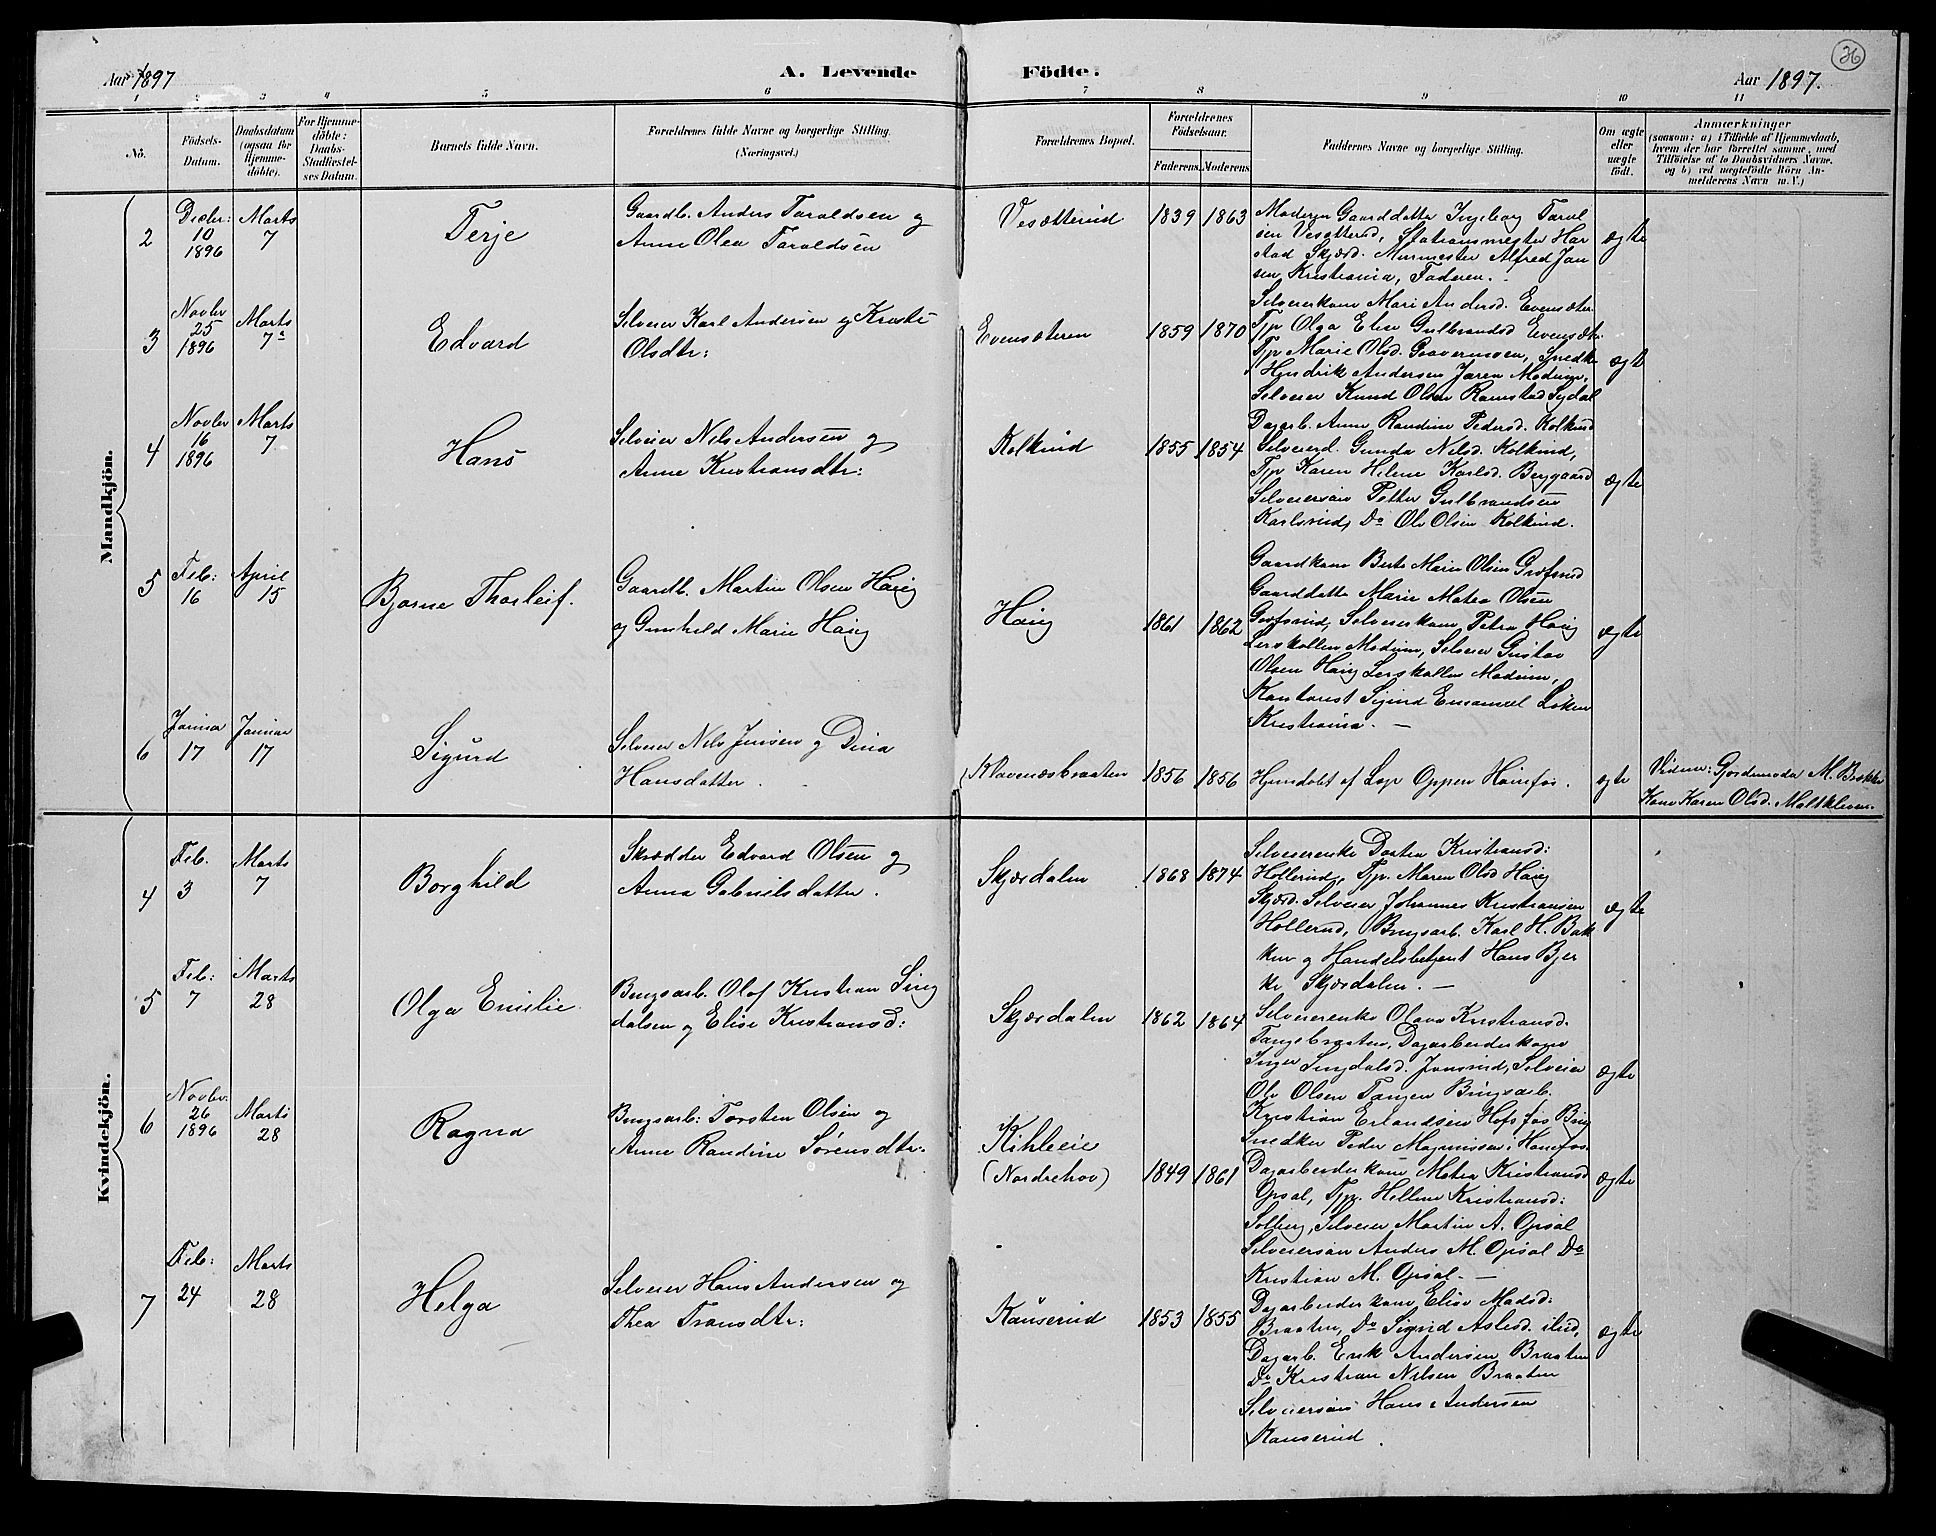 26
Aar 1897
A. Levende Födte.
Aar 1897.
1 2 3 4 5 6 7 8 9 10 11
No.
Födsels-
Datum.
Daabsdatum
(ogsaa for
Hjemme-
döbte).
For Hjemme-
döbte:
Daabs-
Stadfæstel-
ses Datum.
Barnets fulde Navn.
Forældrenes fulde Navne og borgerlige Stilling.
(Næringsvei.)
Forældrenes Bopæl.
Forældrenes
Födselsaar.
Faderens. Moderens.
Faddernes Navne og borgerlige Stilling.
Om ægte
eller
uægte
födt.
Anmærkninger
(saasom: a) i Tilfælde af Hjemmedaab,
hvem der har forrettet samme, med
Tilföielse af to Daabsvidners Navne,
og b) ved uægtefödte Börn An-
melderens Navn m. V.)
Mandkjön.
2
Decbr:
10
1896
Marts
7
Terje
Gaardb. Anders Taraldsen og
Anne Olea Taraldsen
Vesætterud
1839 1863
Moderen Gaarddatter Ingeborg Taral
sen Vesætterud, Stationsmester Har
stad Skjærd. Murmester Alfred Jan
sen, Kristiania, Faderen.
ægte
3
Novbr
25
1896
Marts
7
Edvard
Selveier Karl Andersen og Kristi
Olsdtr:
Evensæteren
1859 1870
Selveierkone Mari Andersd. Evensæter
Tjp Olga Elise Gulbrandsd Evensæt.
Tjp Marie Olsd. Snedk
Hendrik Andersen Jaren Modum,
Selveier Knud Olsen Ramstad Sydal
ægte
4
Novbr
16
1896
Marts
7
Hans
Selveier Nils Andersen og
Anne Kristiansdtr:
Kolkind
1855 1854
Dagarb. Anne Randine Pedersd. Kolkind
Selveierd. Gunda Nilsd. Kolkind,
Tjp Karen Helene Karlsd. Berggaard
Selveiersøn Petter Gulbrandsen
Karlsrud, Do Ole Olsen Kolkind.
ægte
5
Feb:
16
April
15
Bjarne Thorleif.
Gaardb. Martin Olsen Haug
og Gunhild Marie Haug
Haug
1861 1862
Gaardkone Berte Marie Olsen Grøfsrud
Gaarddatter Marie Matea Olsen
Grøfsrud, Selveierkone Petra Haug
Lerskallen Modum, Selveier Gustav
Olsen Haug Lerskallen Modum,
Kontorist Sigurd Emanuel Løken
Kristiania. —
ægte
6
Januar
17
Januar
17
Sigurd
Selveier Nils Jensen og Dina
Hansdatter.
Klavenæsbraaten
1856 1856
Hjemdøbt af Læge Oppen Hønefos.
ægte
Vidner: Gjordemoder M. Brække
Kone Karen Olsd. Moltkleven.
Kvindekjön.
4
Feb.
3
Marts
7
Borghild
Skrædder Edvard Olsen og
Anna Gabrielsdatter.
Skjærdalen
1868 1874
Selveierenke Dortea Kristiansd:
Hollerud, Tjp. Maren Olsd Haug
Skjærd. Selveier Johannes Kristiansen
Hollerud, Brugsarb. Karl H. Bak
ken og Handelsbetjent Hans Bjer
ke Skjærdalen. —
ægte
5
Feb:
7
Marts
28
Olga Emilie.
Brugsarb. Olof Kristian Ling
dalsen og Elise Kristiansd:
Skjærdalen
1862 1864
Selveierenke Olava Kristiansd.
Tangebraaten, Dagarbeiderkone
Inger Lingdalsd. Jonsrud, Selveier
Ole Olsen Tangen Brugsarb.
Kristian Erlandsen Hofsfos Brug
Snedker Peder Magnussen Hønefos.
ægte
6
Novbr.
26
1896
Marts
28
Ragna
Brugsarb: Torsten Olsen og
Anne Randine Sørensdtr.
Kihleeie
(Norderhov)
1849 1861
Dagarbeiderkone Matea Kristiansd
Opsal, Tjp. Hellene Kristiansd:
Solberg, Selveier Martin A. Opsal
Selveiersøn Anders M. Opsal Do
Kristian M. Opsal. —
ægte
7
Feb:
24
Marts
28
Helga
Selveier Hans Andersen og
Thea Fransdtr:
Kauserud
1853 1855
Dagarbeiderkone Elise Madsd:
Braaten, Do Sigrid Aslesd. ibid,
Dagarb. Erik Andersen Braaten
Do Kristian Nilsen Braaten
Selveiersøn Hans Andersen
Kauserud.
ægte